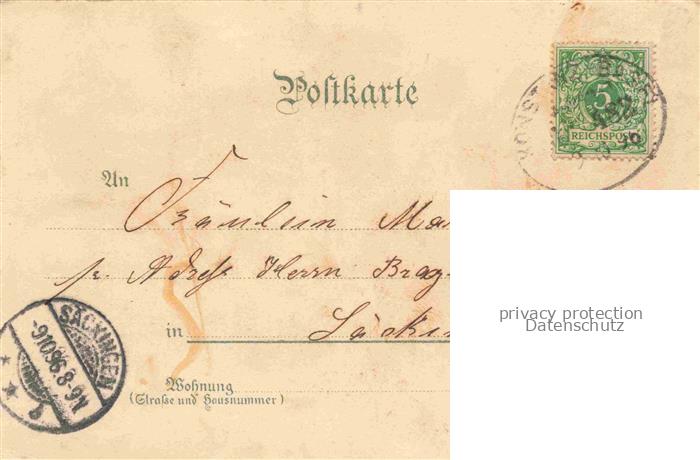 Postkarte
5
REICHSPOST
An
Fräulein Ma
pr. Adress Herrn
in Säckin
SÄCKINGEN
-9.10.96.8-9N.
Wohnung
(Straße und Hausnummer)
privacy protection
Datenschutz